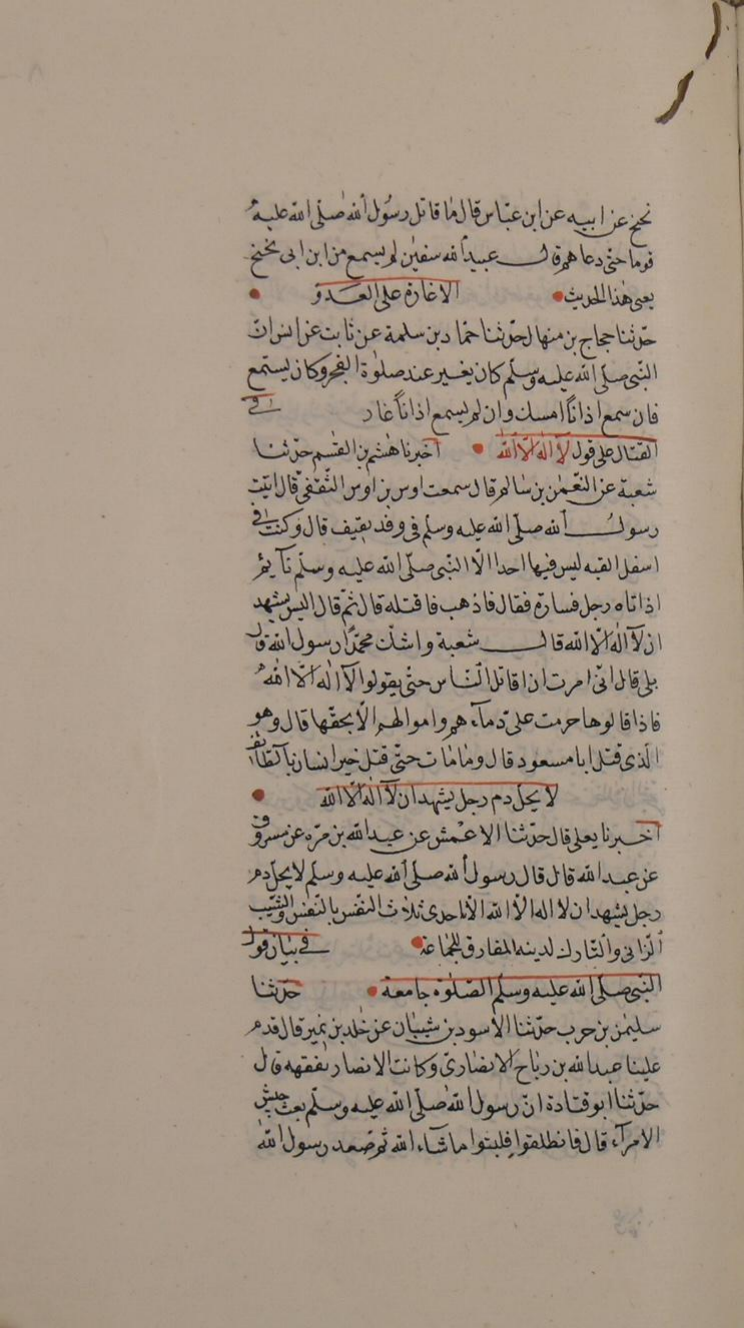 نجيح عن ابيه عن ابن عباس قال ما قاتل رسول الله صلى الله عليه وسلم
قوما حتى دعاهم قال عبيد الله سفين لم يسمع من ابن ابى نجيح
يعنى هذا الحديث الاغارة على العدو
حدثنا حجاج بن منهال حدثنا حماد بن سلمة عن ثابت عن انس ان
النبى صلى الله عليه وسلم كان يغير عند صلوة الفجر وكان يستمع
فان سمع اذانا امسك وان لم يسمع اذانا غار فى
القتال على قول لا اله الا الله اخبرنا هشم بن القسم حدثنا
شعبة عن النعمن بن سالم قال سمعت اوس بن اوس الثقفى قال اتيت
رسول الله صلى الله عليه وسلم فى وفد ثقيف قال وكنت فى
اسفل القبه ليس فيها احد الا النبى صلى الله عليه وسلم نآئم
اذ اتاه رجل فساره فقال فاذهب فاقتله قال ثم قال اليس يشهد
ان لا اله الا الله قال شعبة واشك محمدا رسول الله قال
بلى قال انى امرت ان اقاتل الناس حتى يقولوا لا اله الا الله
فاذا قالوها حرمت على دمآءهم واموالهم الا بحقها قال وهو
الذى قتل ابا مسعود قال وما مات حتى قتل خير انسان بالطائف
لا يحل دم رجل يشهد ان لا اله الا الله
اخبرنا يعلى قال حدثنا الاعمش عن عبد الله بن مره عن مسروق
عن عبد الله قال قال رسول الله صلى الله عليه وسلم لا يحل دم
رجل يشهد ان لا اله الا الله الا باحدى ثلاث النفس بالنفس والثيب
الزانى والتارك لدينه المفارق للجماعة فى بيان قول
النبى صلى الله عليه وسلم الصلوة جامعة حدثنا
سليمن بن حرب حدثنا الاسود بن شيبان عن خلد بن نمير قال قدم
علينا عبد الله بن رباح الانصارى وكانت الانصار تفقهه قال
حدثنا ابو قتادة ان رسول الله صلى الله عليه وسلم بعث جيش
الامرآء قال فانطلقوا فلبثوا ما شآء الله ثم صعد رسول الله